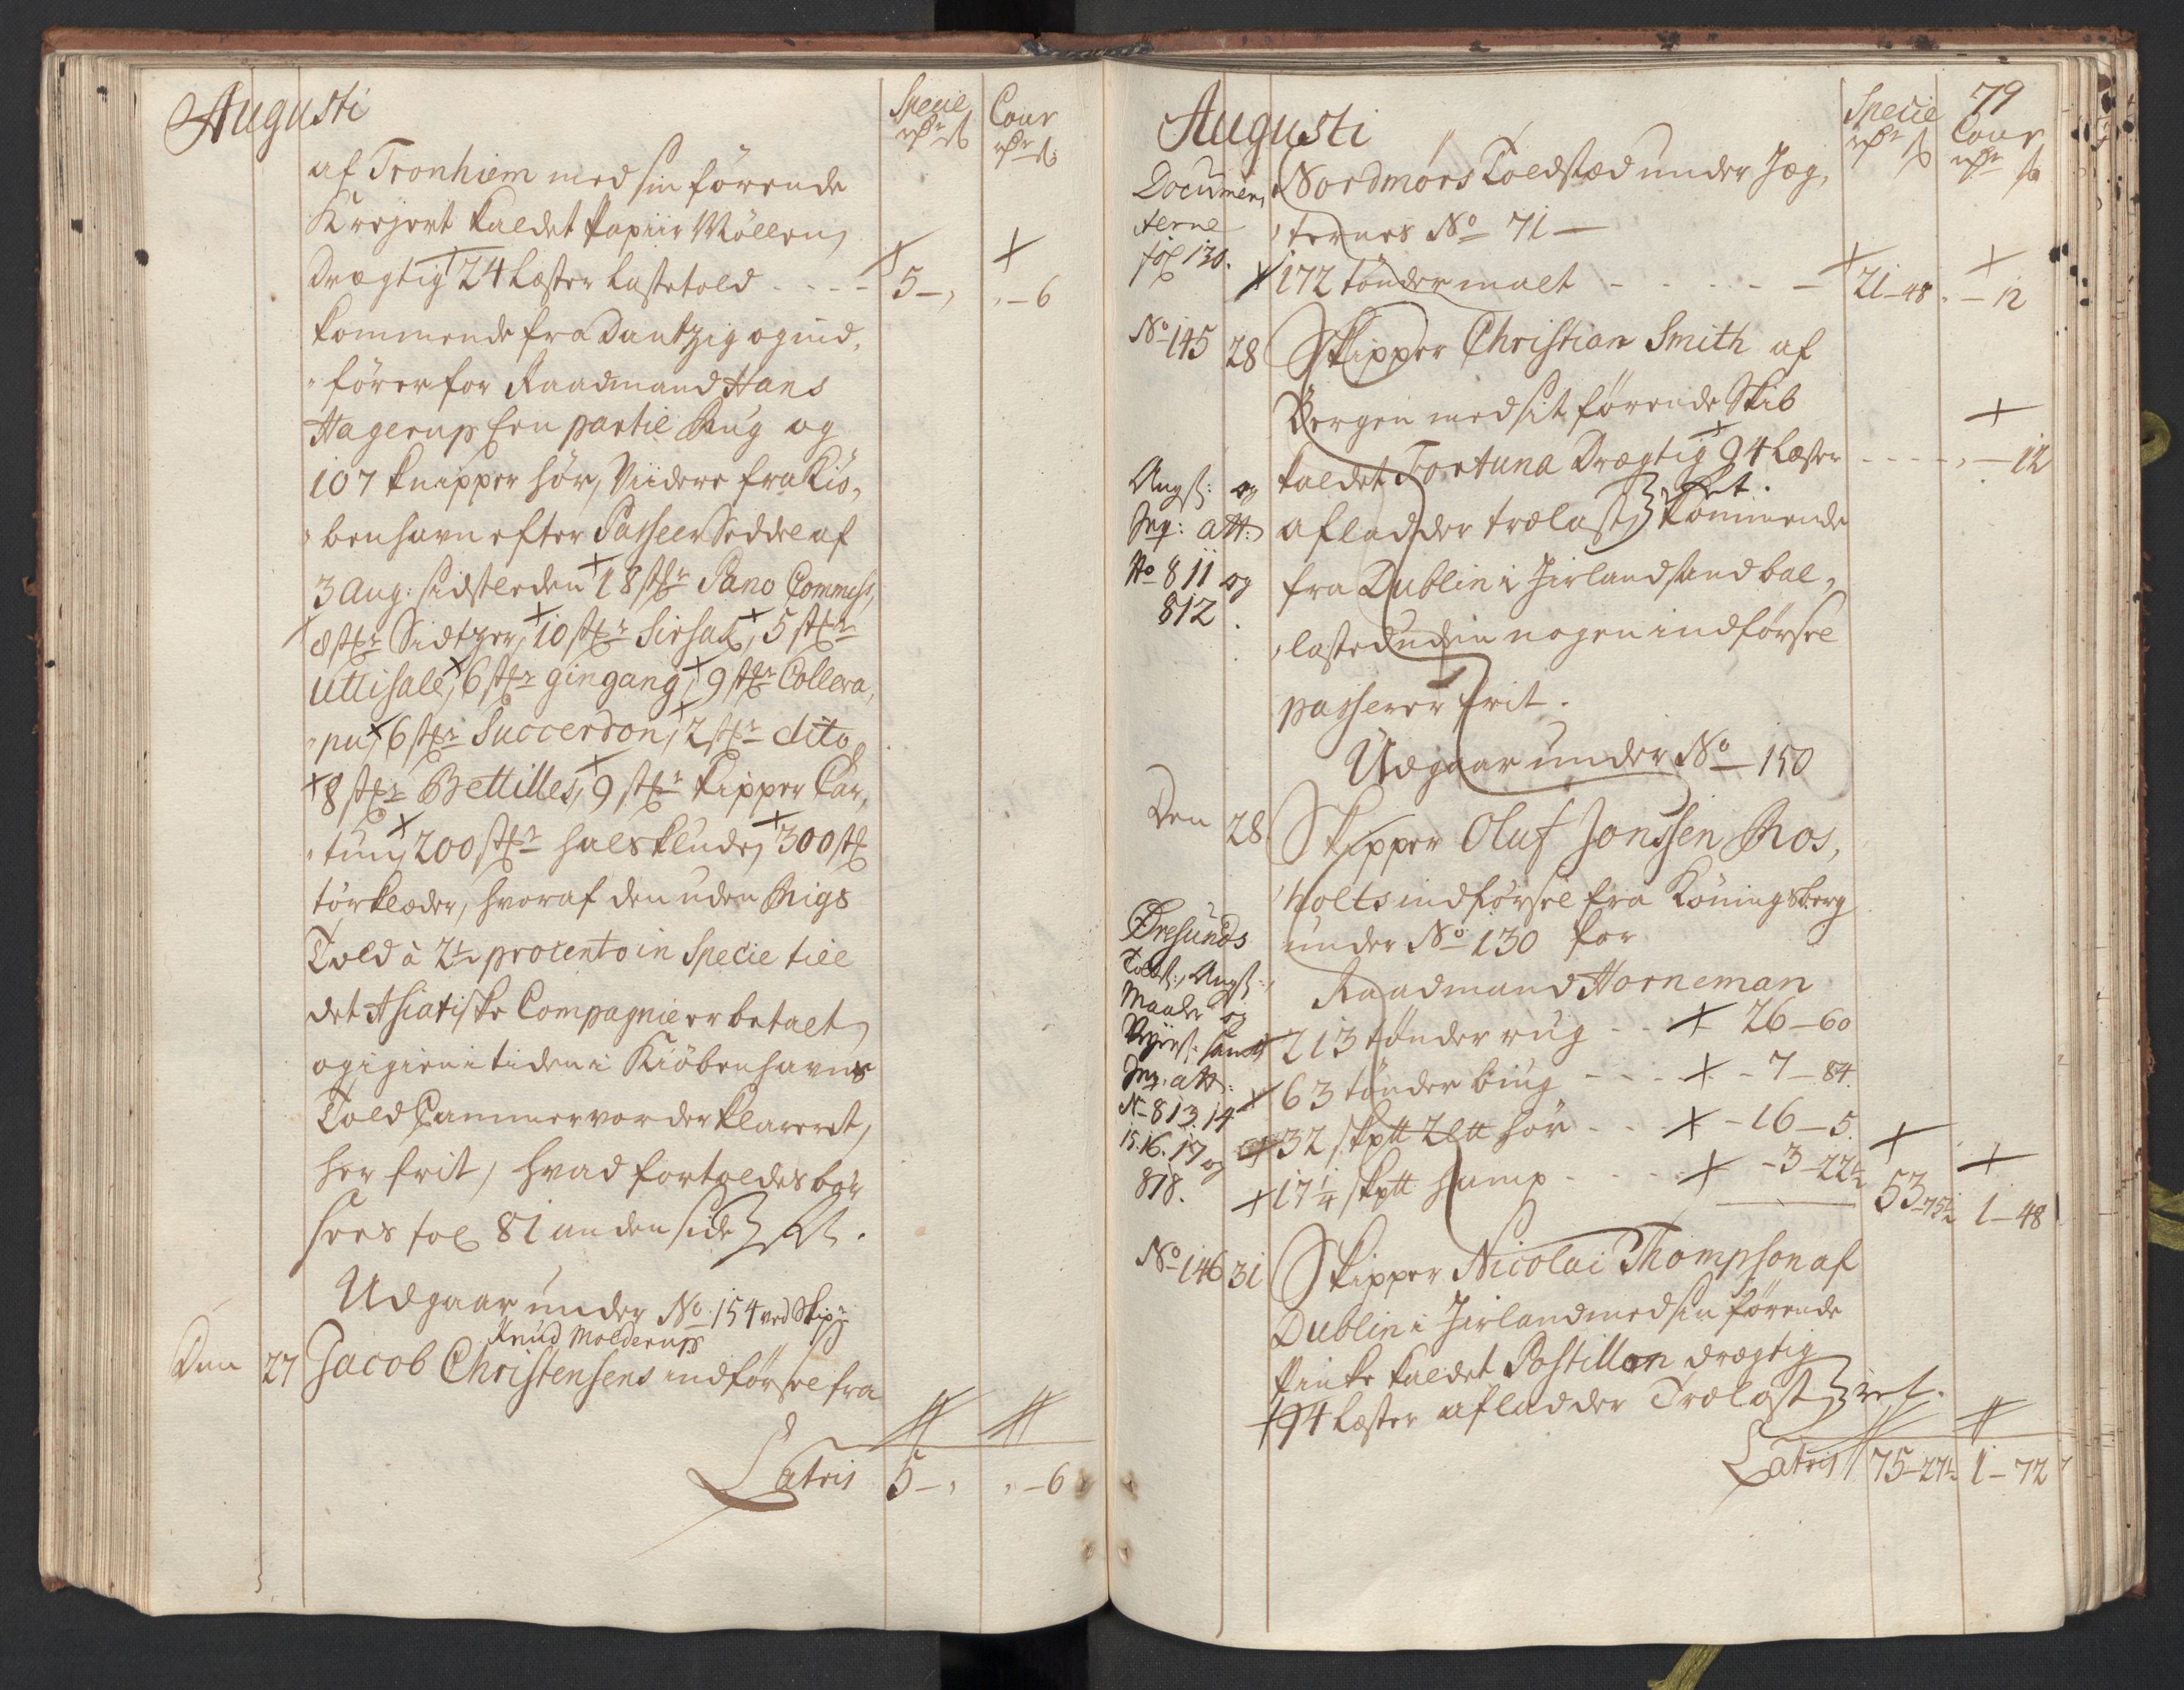 Augusti
Specie
Cour
af Tronhiem med sin förende
Krejert kaldet Papiir Møllen,
Drægtig 24 Læster Lastetold - - - - 5 - , , - 6
kommende fra Dantzig og ind,
fører for Raadmand Hans
Hagerup En partie Rug og
107 knipper hör, Viidere fra Kiö,
benhavn efter Passeer Seddel af
3 Aug: sidstleden 18 stkr Sano Commess,
8 stkr Sidtzer, 10 stkr Sirsak, 5 stkr
Uttisale, 6 stkr gingang, 9 stkr Collera,
pu, 6 stkr Succerdon, 2 stkr dito
8 stkr Bettilles, 9 stkr kipper Car,
tun, 200 stkr halsklude, 300 stk
törklæder, hvoraf den uden Rigs
Told à 2½ procento in Specie till
det Asiatiske Compagnie er betalt,
og igien i tiden i Kiöbenhavns
Told Cammer vorder klareret,
her frit, hvad fortoldes bör
sees fol 81 anden side
Udgaar under No. 154 ved Skipr
Knud Molderups
Den 27 Jacob Christensens indförsel fra
Latris 5 - , , - 6
79
Augusti
Specie
Cour
Documen,
terne
fol 130.
Nordmørs Toldstæd under Jæg,
ternes No 71 -
172 tönder malt - - - - - 21 - 48 , - 12
No 145 28 Skipper Christian Smith af
Bergen med sit förende Skib
kaldet Fortuna Drægtig 94 Læster - - - - , - 12
Angst: og
Inq: att:
No 811 og
812.
aflad der trælast kommende
fra Dublin i Jirland sand bal,
lasted uden nogen indförsel
passerer frit.
Udgaar under No 150
Den 28 Skipper Oluf Jonssen Ros,
holts indförsel fra Köningsberg
under No 130 for
Øresunds
Toldst:, Angst:,
Maaler og
Vejerst: samt
Inq: att:
No 813. 14
15. 16. 17 og
818.
Raadmand Horneman
213 tönder rug - - 26 - 60
63 tönder biug - - - - 7 - 84
32 skptt 2 ltt hör - - - - 16 - 5.
17¼ skptt hamp - - - - 3 - 22½ 53 - 75½ 1 - 48
No 146 31 Skipper Nicolai Thompson af
Dublin i Jirland med sin förende
Pinke kaldet Postillon drægtig
94 Læster aflad der Trælast
Latris 75 - 27½ 1 - 72